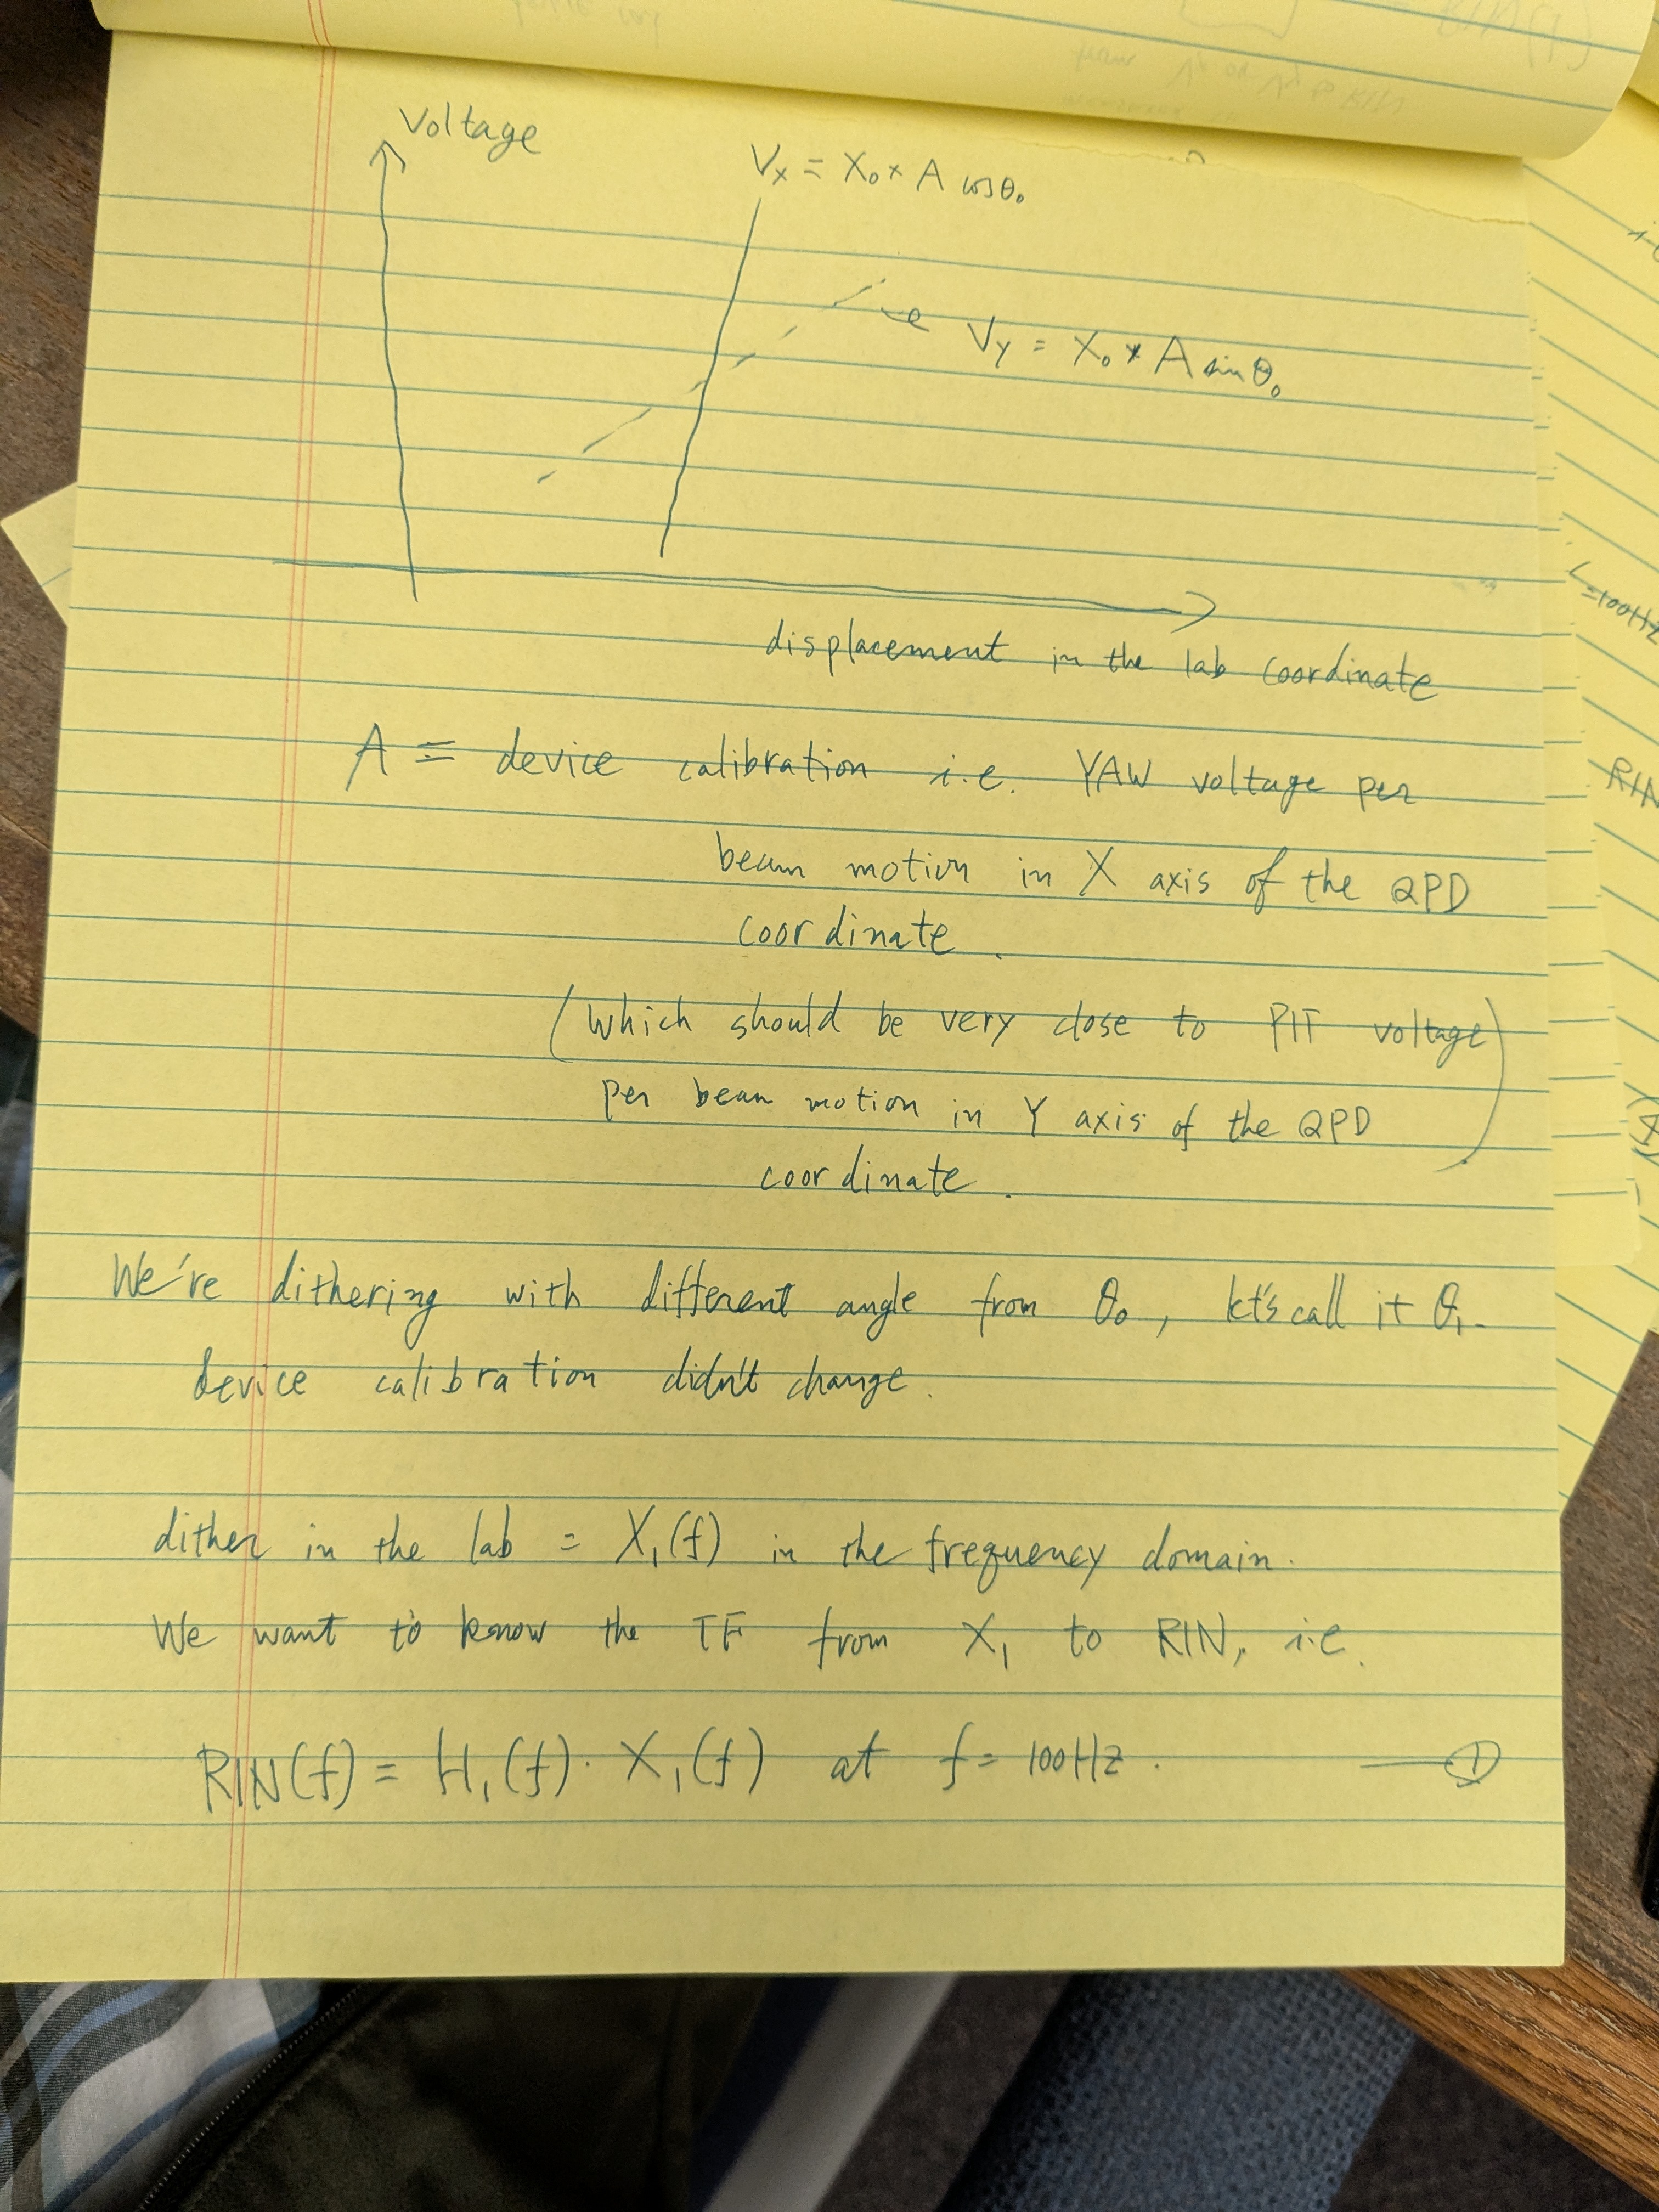 Voltage
Vx = X₀ * A cosθ₀
Vy = X₀ * A sinθ₀
displacement in the lab coordinate
A ≡ device calibration i.e. YAW voltage per
beam motion in X axis of the QPD
coordinate.
(which should be very close to PIT voltage
per beam motion in Y axis of the QPD
coordinate.)
We're dithering with different angle from θ₀, let's call it θ₁.
device calibration didn't change.
dither in the lab = X₁(f) in the frequency domain.
We want to know the TF from X₁ to RIN, i.e.
RIN(f) = H₁(f) · X₁(f) at f = 100Hz. — ①
=100Hz
RIN